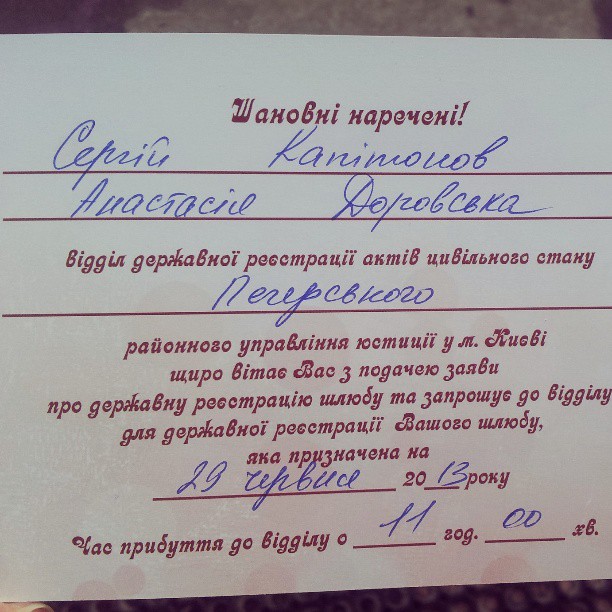 Шановні наречені!
Сергій Капітонов
Анастасія Доровська
відділ державної реєстрації актів цивільного стану
Печерського
районного управління юстиції у м. Києві
щиро вітає Вас з подачею заяви
про державну реєстрацію шлюбу та запрошує до відділу
для державної реєстрації Вашого шлюбу,
яка призначена на
29 червня 2013 року
Час прибуття до відділу о 11 год. 00 хв.